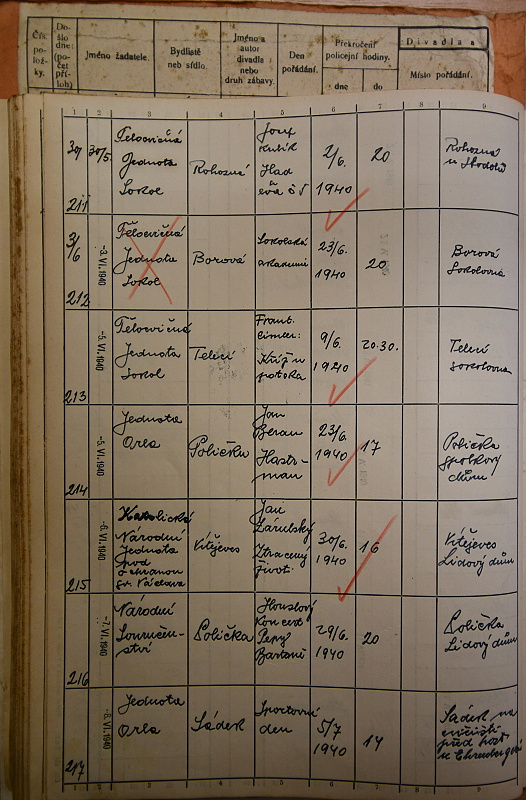 Čís. po- lož- ky.
Do- šlo dne: (po- čet pří- loh)
Jméno žadatele.
Bydliště neb sídlo.
Jméno a autor divadla nebo druh zábavy.
Den pořádání.
Překročení policejní hodiny.
dne
do
Divadla a
Místo pořádání.
1 2 3 4 5 6 7 8 9
30/5
Tělocvičná
Jednota
Sokol
Rohozná
Josef
Kubík
Had
2/6.
1940
20
Rohozná
u
211
3/6
-3. VI. 1940
Tělocvičná
Jednota
Sokol
Borová
Sokolská
akademie
23/6.
1940
20
Borová
Sokolovna
212
-5. VI. 1940
Tělocvičná
Jednota
Sokol
Telecí
Frant.
Cimler:
Kříž u
potoka
9/6.
1940
20.30.
Telecí
sokolovna
213
-5. VI. 1940
Jednota
Orla
Polička
Jan
Beran
Hastr-
man
23/6.
1940
17
Polička
spolkový
dům
214
-6. VI. 1940
Katolická
Národní
Jednota
pod
ochranou
sv. Václava
Kitějeves
Jan
Zárubský
Ztracený
život
30/6.
1940
16
Kitějeves
Lidový dům
215
-7. VI. 1940
Národní
Souručen-
ství
Polička
Houslový
Koncert
29/6.
1940
20
Polička
Lidový dům
216
-8. VI. 1940
Jednota
Orla
Sádek
Sportovní
den
5/7
1940
14
Sádek na
cvičišti
před host.
u
217